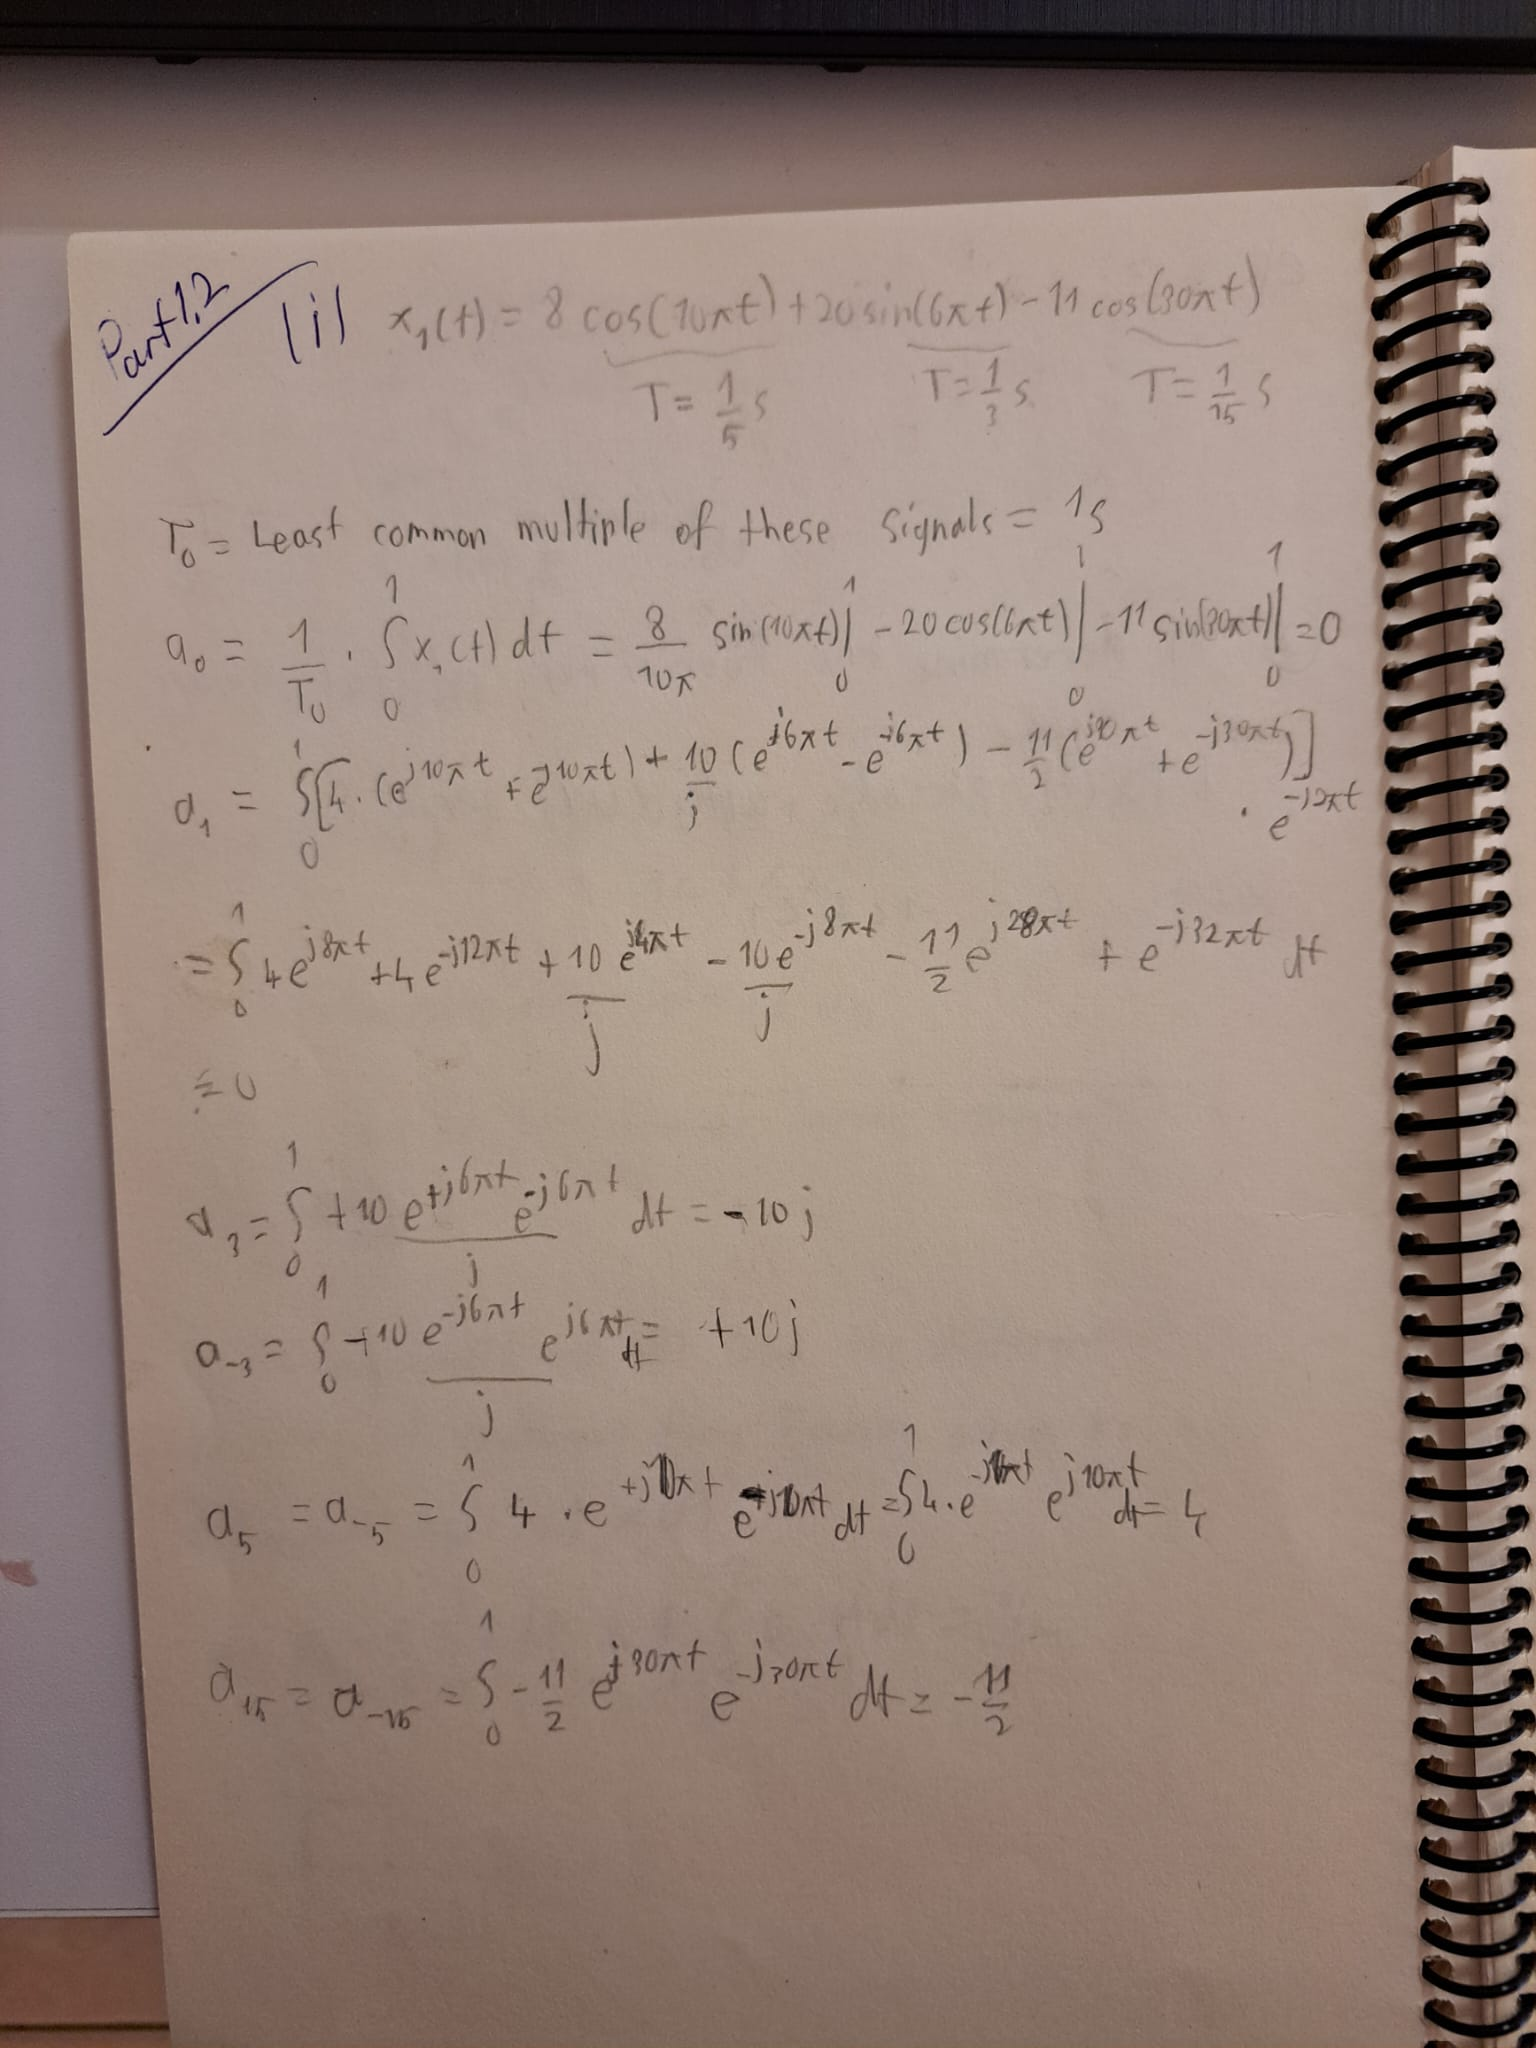 Part 1.2
(i) x₁(t) = 8 cos(10πt) + 20 sin(6πt) - 11 cos(30πt)
T = 1/5 s T = 1/3 s T = 1/15 s
T₀ = Least common multiple of these signals = 1s
a₀ = 1/T₀ . ∫₀¹ x₁(t) dt = 8/10π sin(10πt)|₀¹ - 20 cos(6πt)|₀¹ - 11 sin(30πt)|₀¹ = 0
a₁ = ∫₀¹ [4 . (e^{j10πt} + e^{-j10πt}) + 10/j (e^{j6πt} - e^{-j6πt}) - 11/2 (e^{j30πt} + e^{-j30πt})]
. e^{-j2πt}
= ∫₀¹ 4e^{j8πt} + 4e^{-j12πt} + 10/j e^{j4πt} - 10/j e^{-j8πt} - 11/2 e^{j28πt} + e^{-j32πt} dt
= 0
a₃ = ∫₀¹ +10 e^{+j6πt} e^{-j6πt} / j dt = -10j
a₋₃ = ∫₀¹ -10 e^{-j6πt} / j e^{j6πt} dt = +10j
a₅ = a₋₅ = ∫₀¹ 4 . e^{+j10πt} e^{-j10πt} dt = ∫₀¹ 4 . e^{-j10πt} e^{j10πt} dt = 4
a₁₅ = a₋₁₅ = ∫₀¹ - 11/2 e^{j30πt} e^{-j30πt} dt = - 11/2